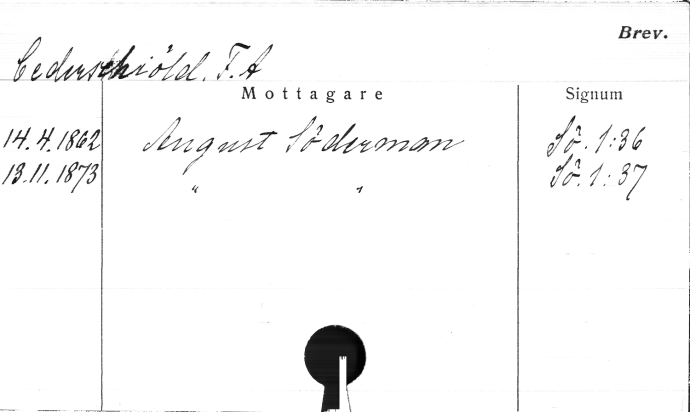 Brev.
Cederschiöld, F. A
Mottagare Signum
14.4.1862 August Söderman Sö. 1:36
13.11.1873 " " Sö. 1:37